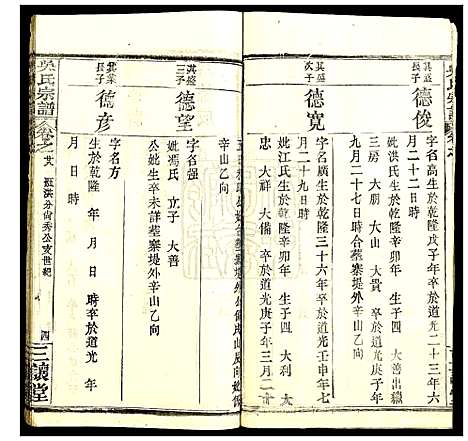 其盛
長子
德俊
字名高生於乾隆戊子年卒於道光二十三年六
月二十二日
妣洪氏生於乾隆辛卯年 生子四 大善出繼
三房 大朋 大山 大貴 卒於道光庚子年
九月二十七日時合葬寨堤外辛山乙向
其盛
次子
德寬
字名廣生於乾隆三十六年卒於道光壬申年七
月二十九日
妣江氏生於乾隆辛卯年 生子四 大利
忠 大祥 大備 卒於道光庚子年三月二十
辛山乙向
其盛
三子
德望
字名强
妣馮氏 立子 大善
公妣生卒未詳葬寨堤外辛山乙向
北業
長子
德彥
字名方
生於乾隆 年 月 日 時卒於道光 年
月 日時
吳氏宗譜
卷之廿 延洪分尚秀公支世紀
四
三讓堂